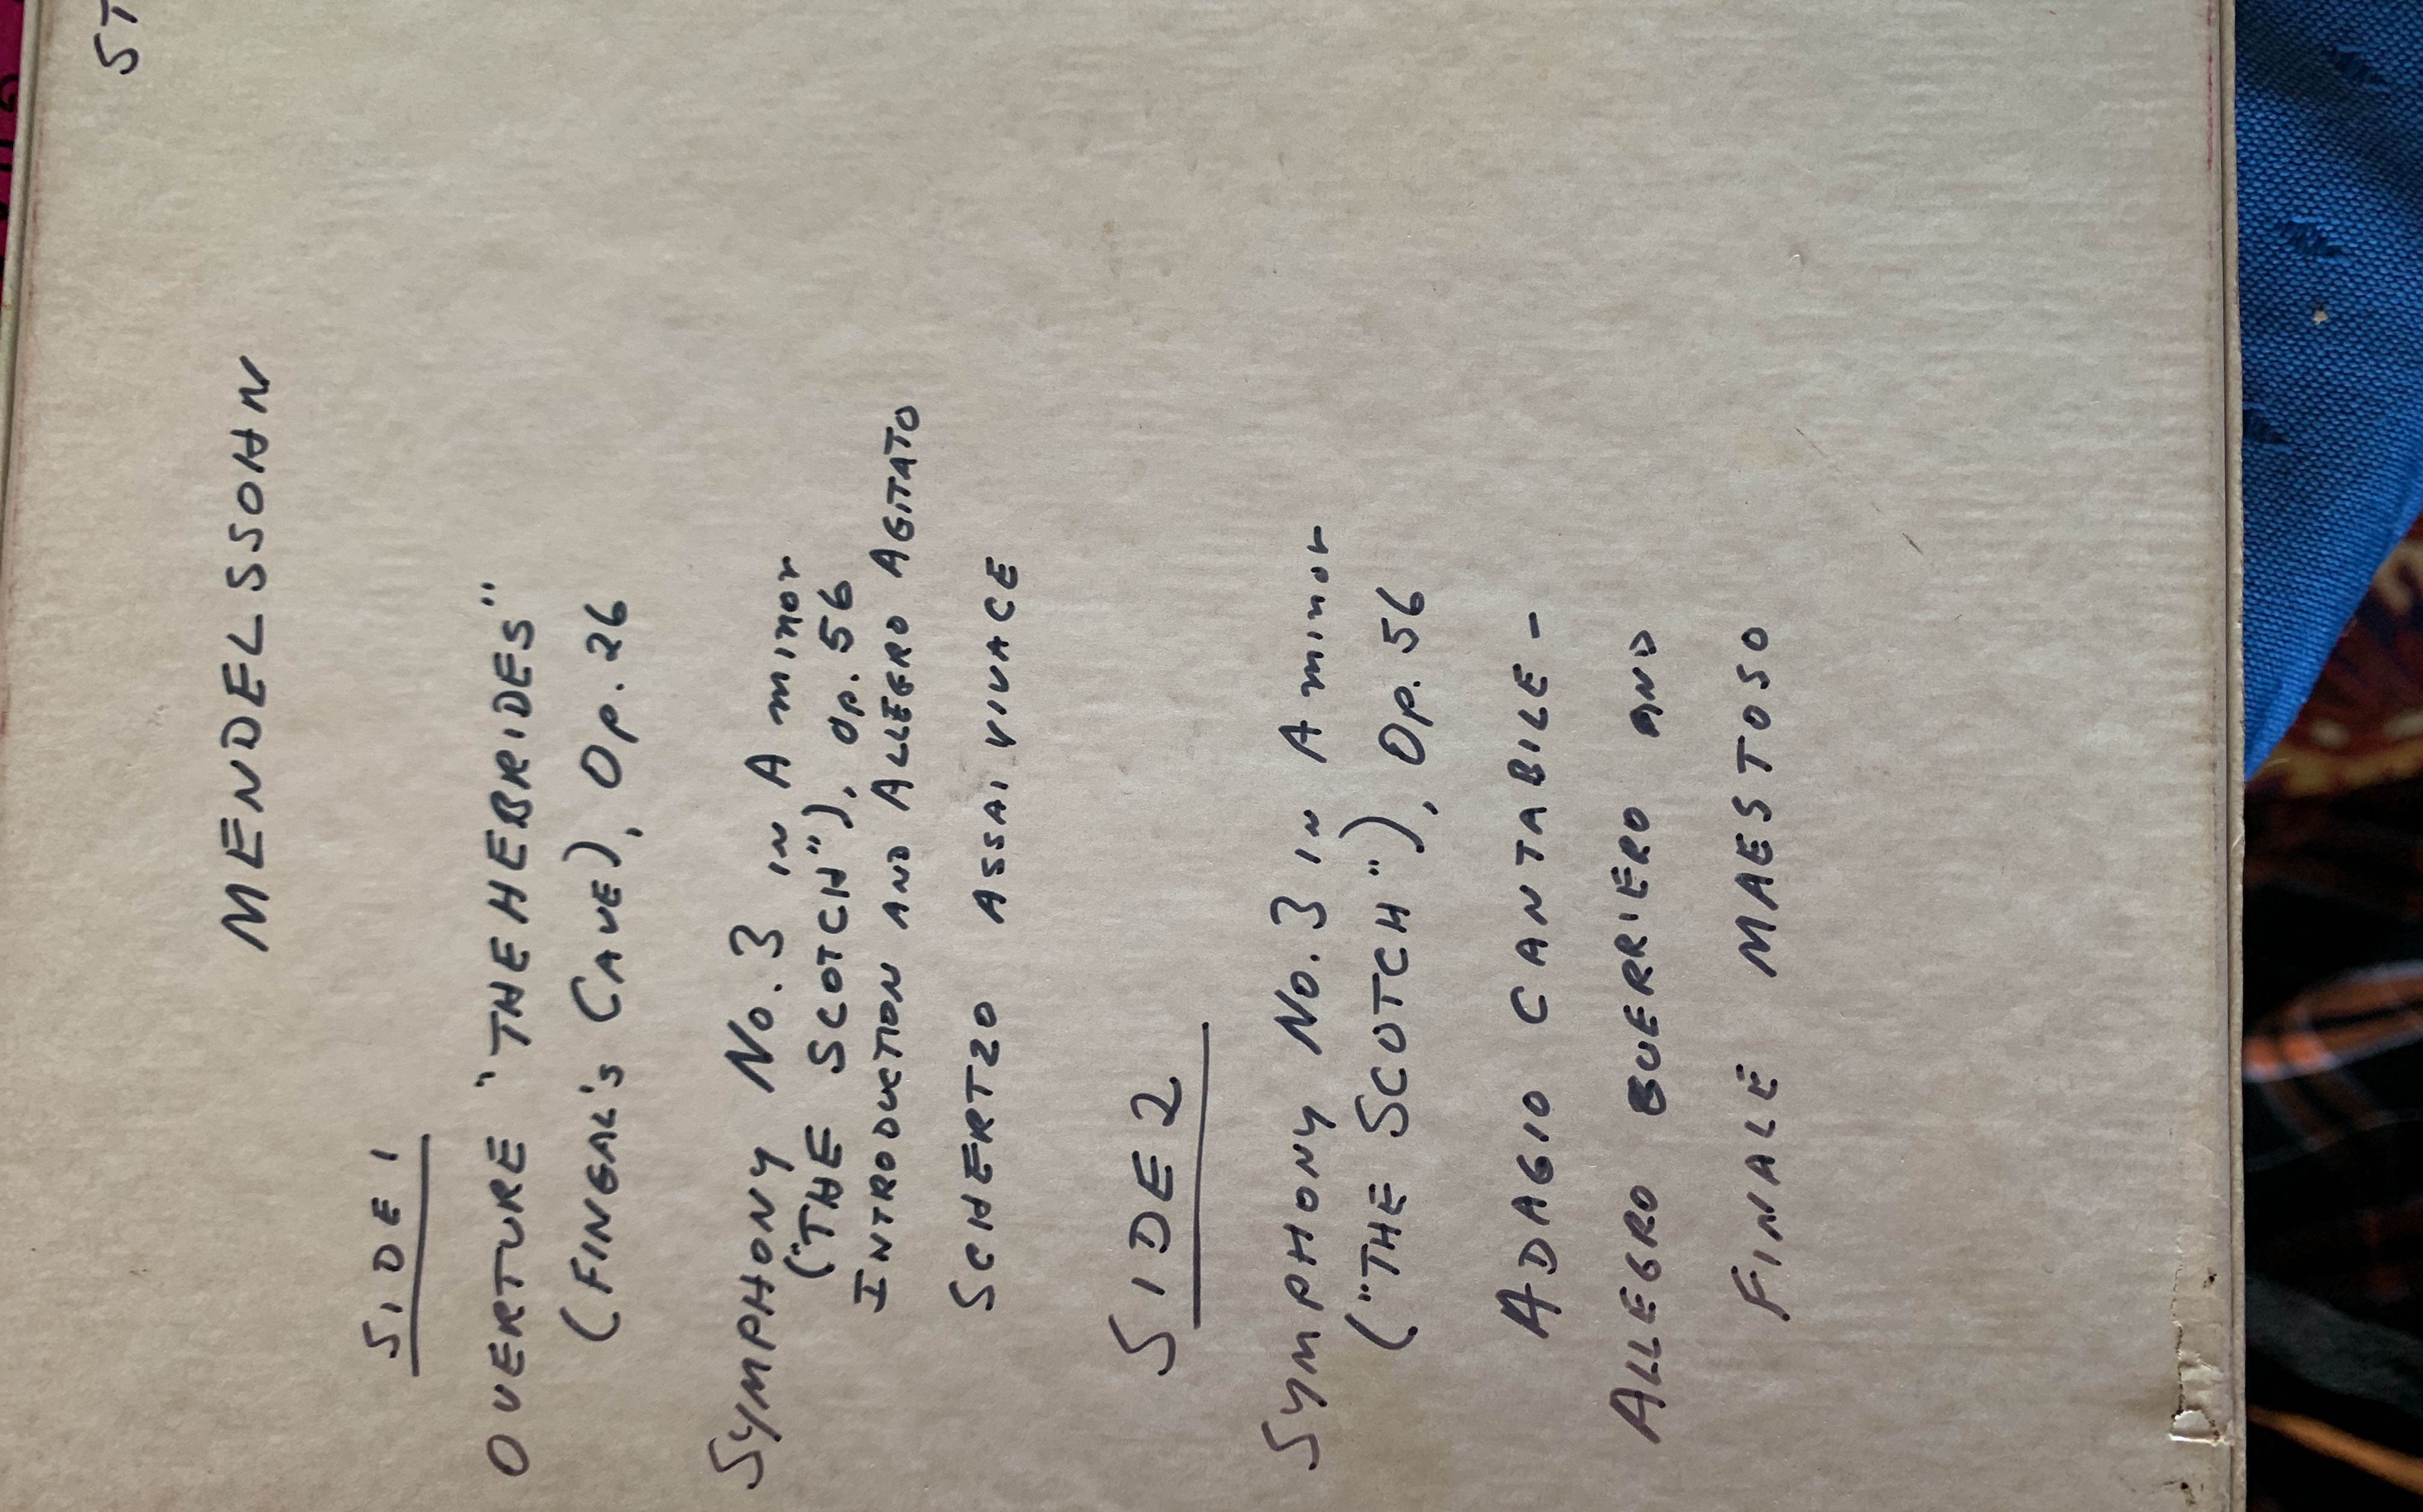 ST
MENDELSSOHN
SIDE 1
OVERTURE "THE HEBRIDES"
(FINGAL'S CAVE), Op. 26
SYMPHONY No. 3 IN A minor
("THE SCOTCH"), Op. 56
INTRODUCTION AND ALLEGRO AGITATO
SCHERTZO ASSAI VIVACE
SIDE 2
SYMPHONY No. 3 IN A minor
("THE SCOTCH"), Op. 56
ADAGIO CANTABILE -
ALLEGRO GUERRIERO AND
FINALE MAESTOSO